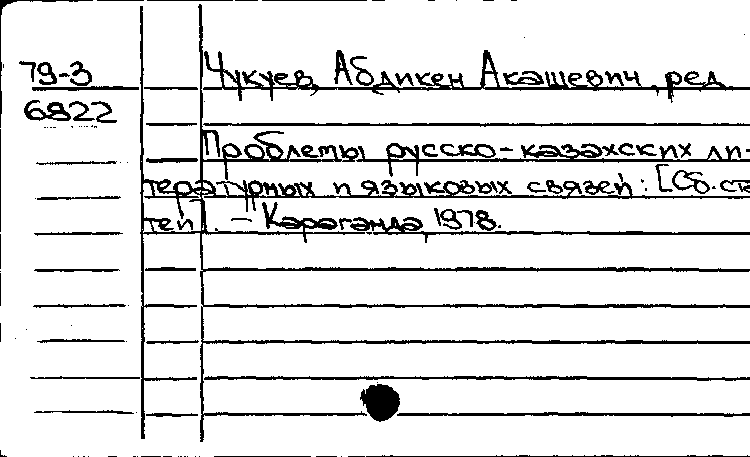 79-3 Чукуев, Абдикен Акашевич, ред.
6822
Проблемы русско-казахских ли-
тературных и языковых связей: [Сб. ста-
тей]. - Караганда, 1978.